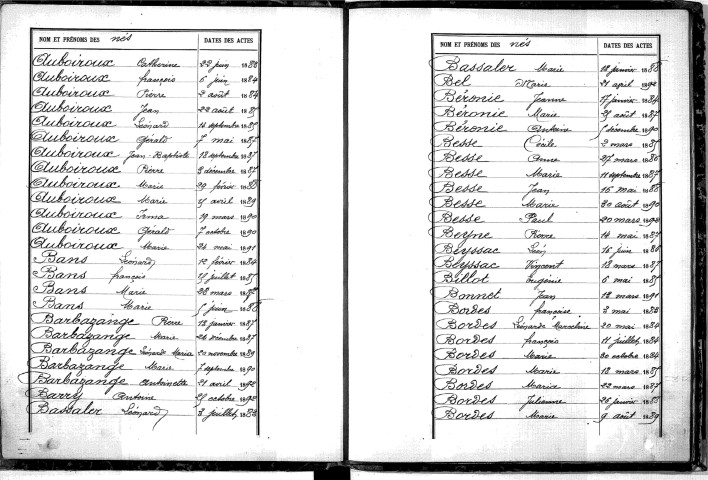 NOM ET PRÉNOMS DES nés DATES DES ACTES
Auboiroux Catherine 22 juin 1883
Auboiroux françois 6 juin 1884
Auboiroux Pierre 2 août 1884
Auboiroux Jean 22 août 1885
Auboiroux Léonard 14 septembre 1885
Auboiroux Gérald 7 mai 1887
Auboiroux Jean-Baptiste 18 septembre 1887
Auboiroux Pierre 2 décembre 1887
Auboiroux Marie 29 février 1888
Auboiroux Marie 21 avril 1889
Auboiroux Irma 19 mars 1890
Auboiroux Gérald 7 octobre 1890
Auboiroux Marie 24 mai 1891
Bans Léonard 12 février 1884
Bans françois 21 juillet 1885
Bans Marie 28 mars
Bans Marie juin 1888
Barbazange Pierre 12 janvier 1887
Barbazange Marie 24 décembre 1887
Barbazange Léonarde Maria 20 novembre 1889
Barbazange Marie 7 septembre 1890
Barbazange Antoinette 21 avril 1892
Barry Antoine 25 octobre 1892
Bassaler Léonard 3 juillet 1883
NOM ET PRÉNOMS DES nés DATES DES ACTES
Bassaler Marie 18 janvier 1888
Bel Marie 21 avril 1892
Béronie Jeanne 17 janvier 1884
Béronie Marie 25 août 1887
Béronie Antoine décembre 1890
Besse Cécile 2 mars 1885
Besse Anne 27 mars 1886
Besse Marie 11 septembre 1887
Besse Jean 16 mai 1888
Besse Marie 20 août 1890
Besse Paul 20 mars 1892
Beyne Pierre 14 mai 1887
Beyssac Léon 16 juin 1886
Beyssac Vincent 18 mars 1887
Billot Eugénie 6 mai 1885
Bonnet Jean 12 mars 1891
Bordes françoise 3 mai 1883
Bordes Léonarde Marcelline 20 mai 1884
Bordes françois 11 juillet 1884
Bordes Marie 30 octobre 1884
Bordes Marie 18 mars 1885
Bordes Maria 22 mars 1887
Bordes Julienne 26 janvier 1888
Bordes Marie 9 août 1889